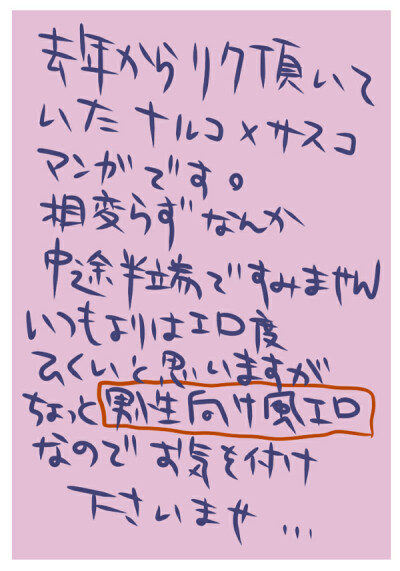 去年からリク頂いて
いたナルコ×サスコ
マンガです。
相変らずなんか
中途半端ですみません
いつもよりはエロ度
ひくいと思いますが
ちょっと男性向け風エロ
なのでお気を付け
下さいませ…